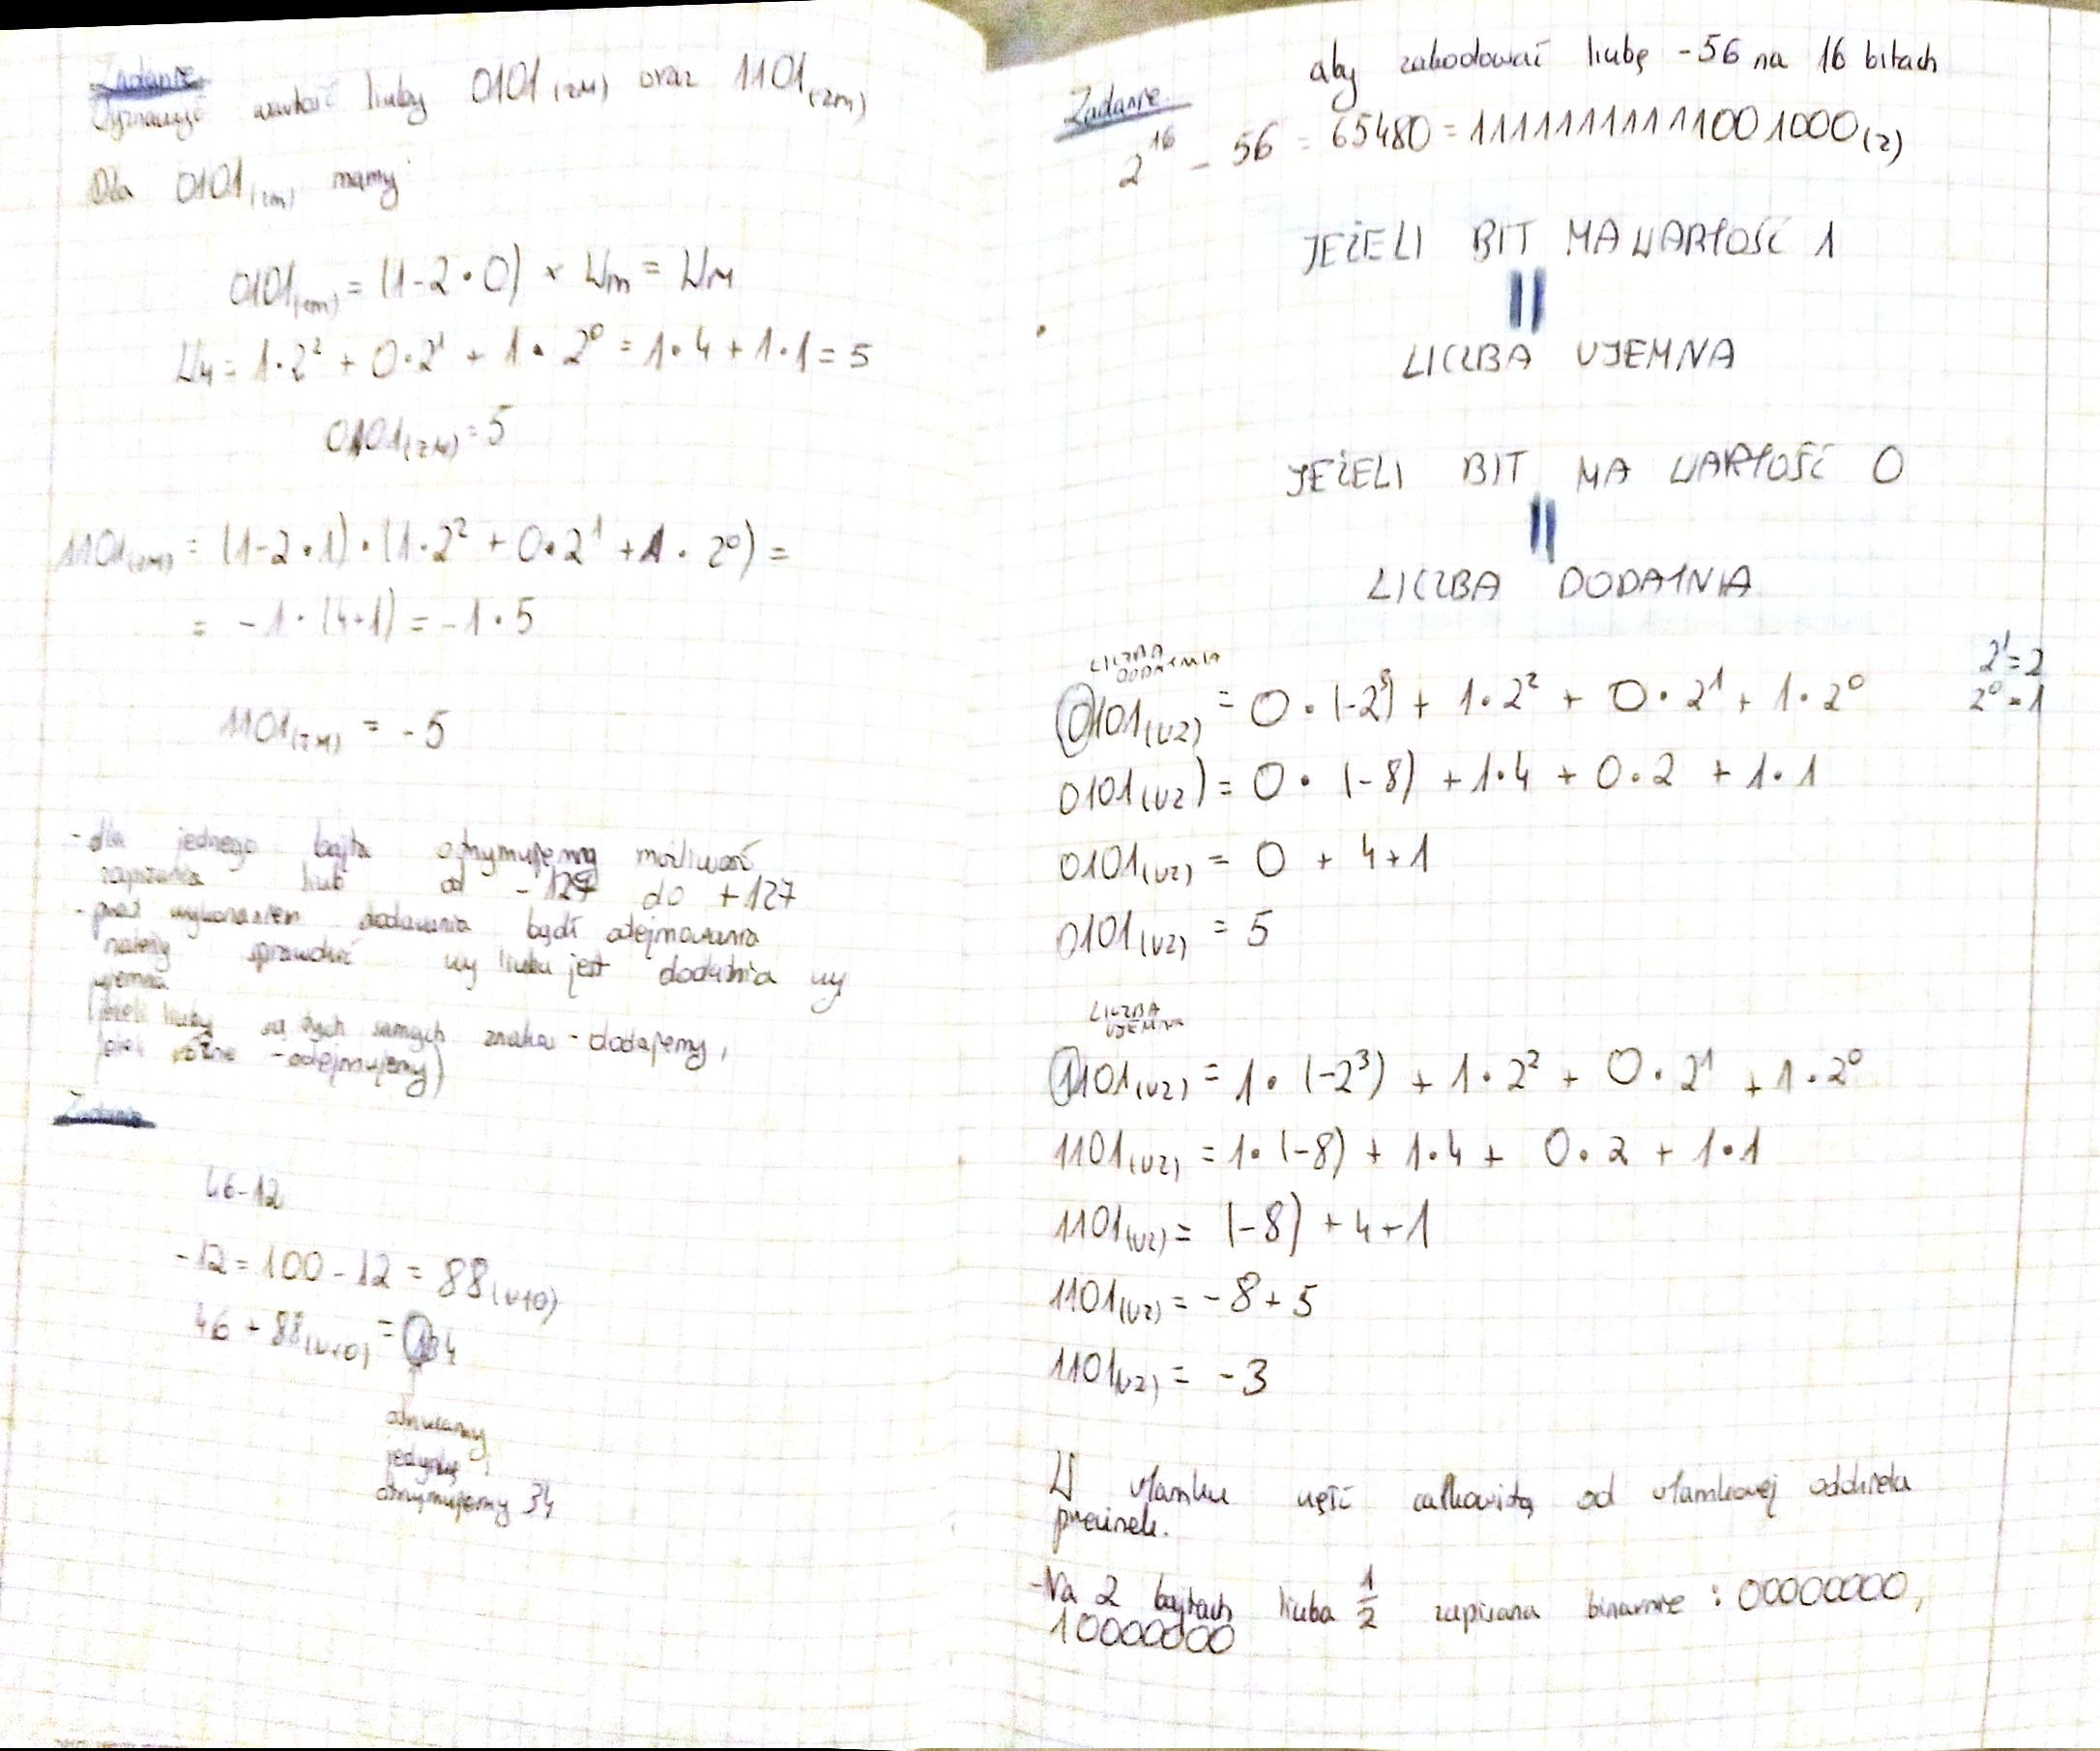 Zadanie
Wyznaczyć wartość liczby 0101(ZM) oraz 1101(ZM)
Dla 0101(ZM) mamy
0101(ZM) = (1-2•0) × Wm = WM
WM = 1•2² + 0•2¹ + 1•2⁰ = 1•4 + 1•1 = 5
0101(ZM) = 5
1101(ZM) = (1-2•1)•(1•2² + 0•2¹ + 1•2⁰) =
= -1•(4+1) = -1•5
1101(ZM) = -5
- dla jednego bajta otrzymujemy możliwość
zapisania liczb od -127 do +127
- przed wykonaniem dodawania bądź odejmowania
należy sprawdzić czy liczba jest dodatnia czy
ujemna
(jeżeli liczby są tych samych znaków - dodajemy,
jeżeli różne - odejmujemy)
Zadanie
46-12
-12 = 100-12 = 88(U10)
46 + 88(U10) = 134
odrzucamy
jedynkę,
otrzymujemy 34
Zadanie
aby zakodować liczbę -56 na 16 bitach
2¹⁶ - 56 = 65480 = 1111111111001000(2)
JEŻELI BIT MA WARTOŚĆ 1
LICZBA UJEMNA
JEŻELI BIT MA WARTOŚĆ 0
LICZBA DODATNIA
LICZBA
DODATNIA
0101(U2) = 0•(-2³) + 1•2² + 0•2¹ + 1•2⁰
2¹=2
2⁰=1
0101(U2) = 0•(-8) + 1•4 + 0•2 + 1•1
0101(U2) = 0 + 4+1
0101(U2) = 5
LICZBA
UJEMNA
1101(U2) = 1•(-2³) + 1•2² + 0•2¹ + 1•2⁰
1101(U2) = 1•(-8) + 1•4 + 0•2 + 1•1
1101(U2) = (-8) + 4+1
1101(U2) = -8+5
1101(U2) = -3
W ułamku część całkowitą od ułamkowej oddziela
przecinek.
-Na 2 bajtach liczba 1/2 zapisana binarnie : 00000000,
10000000